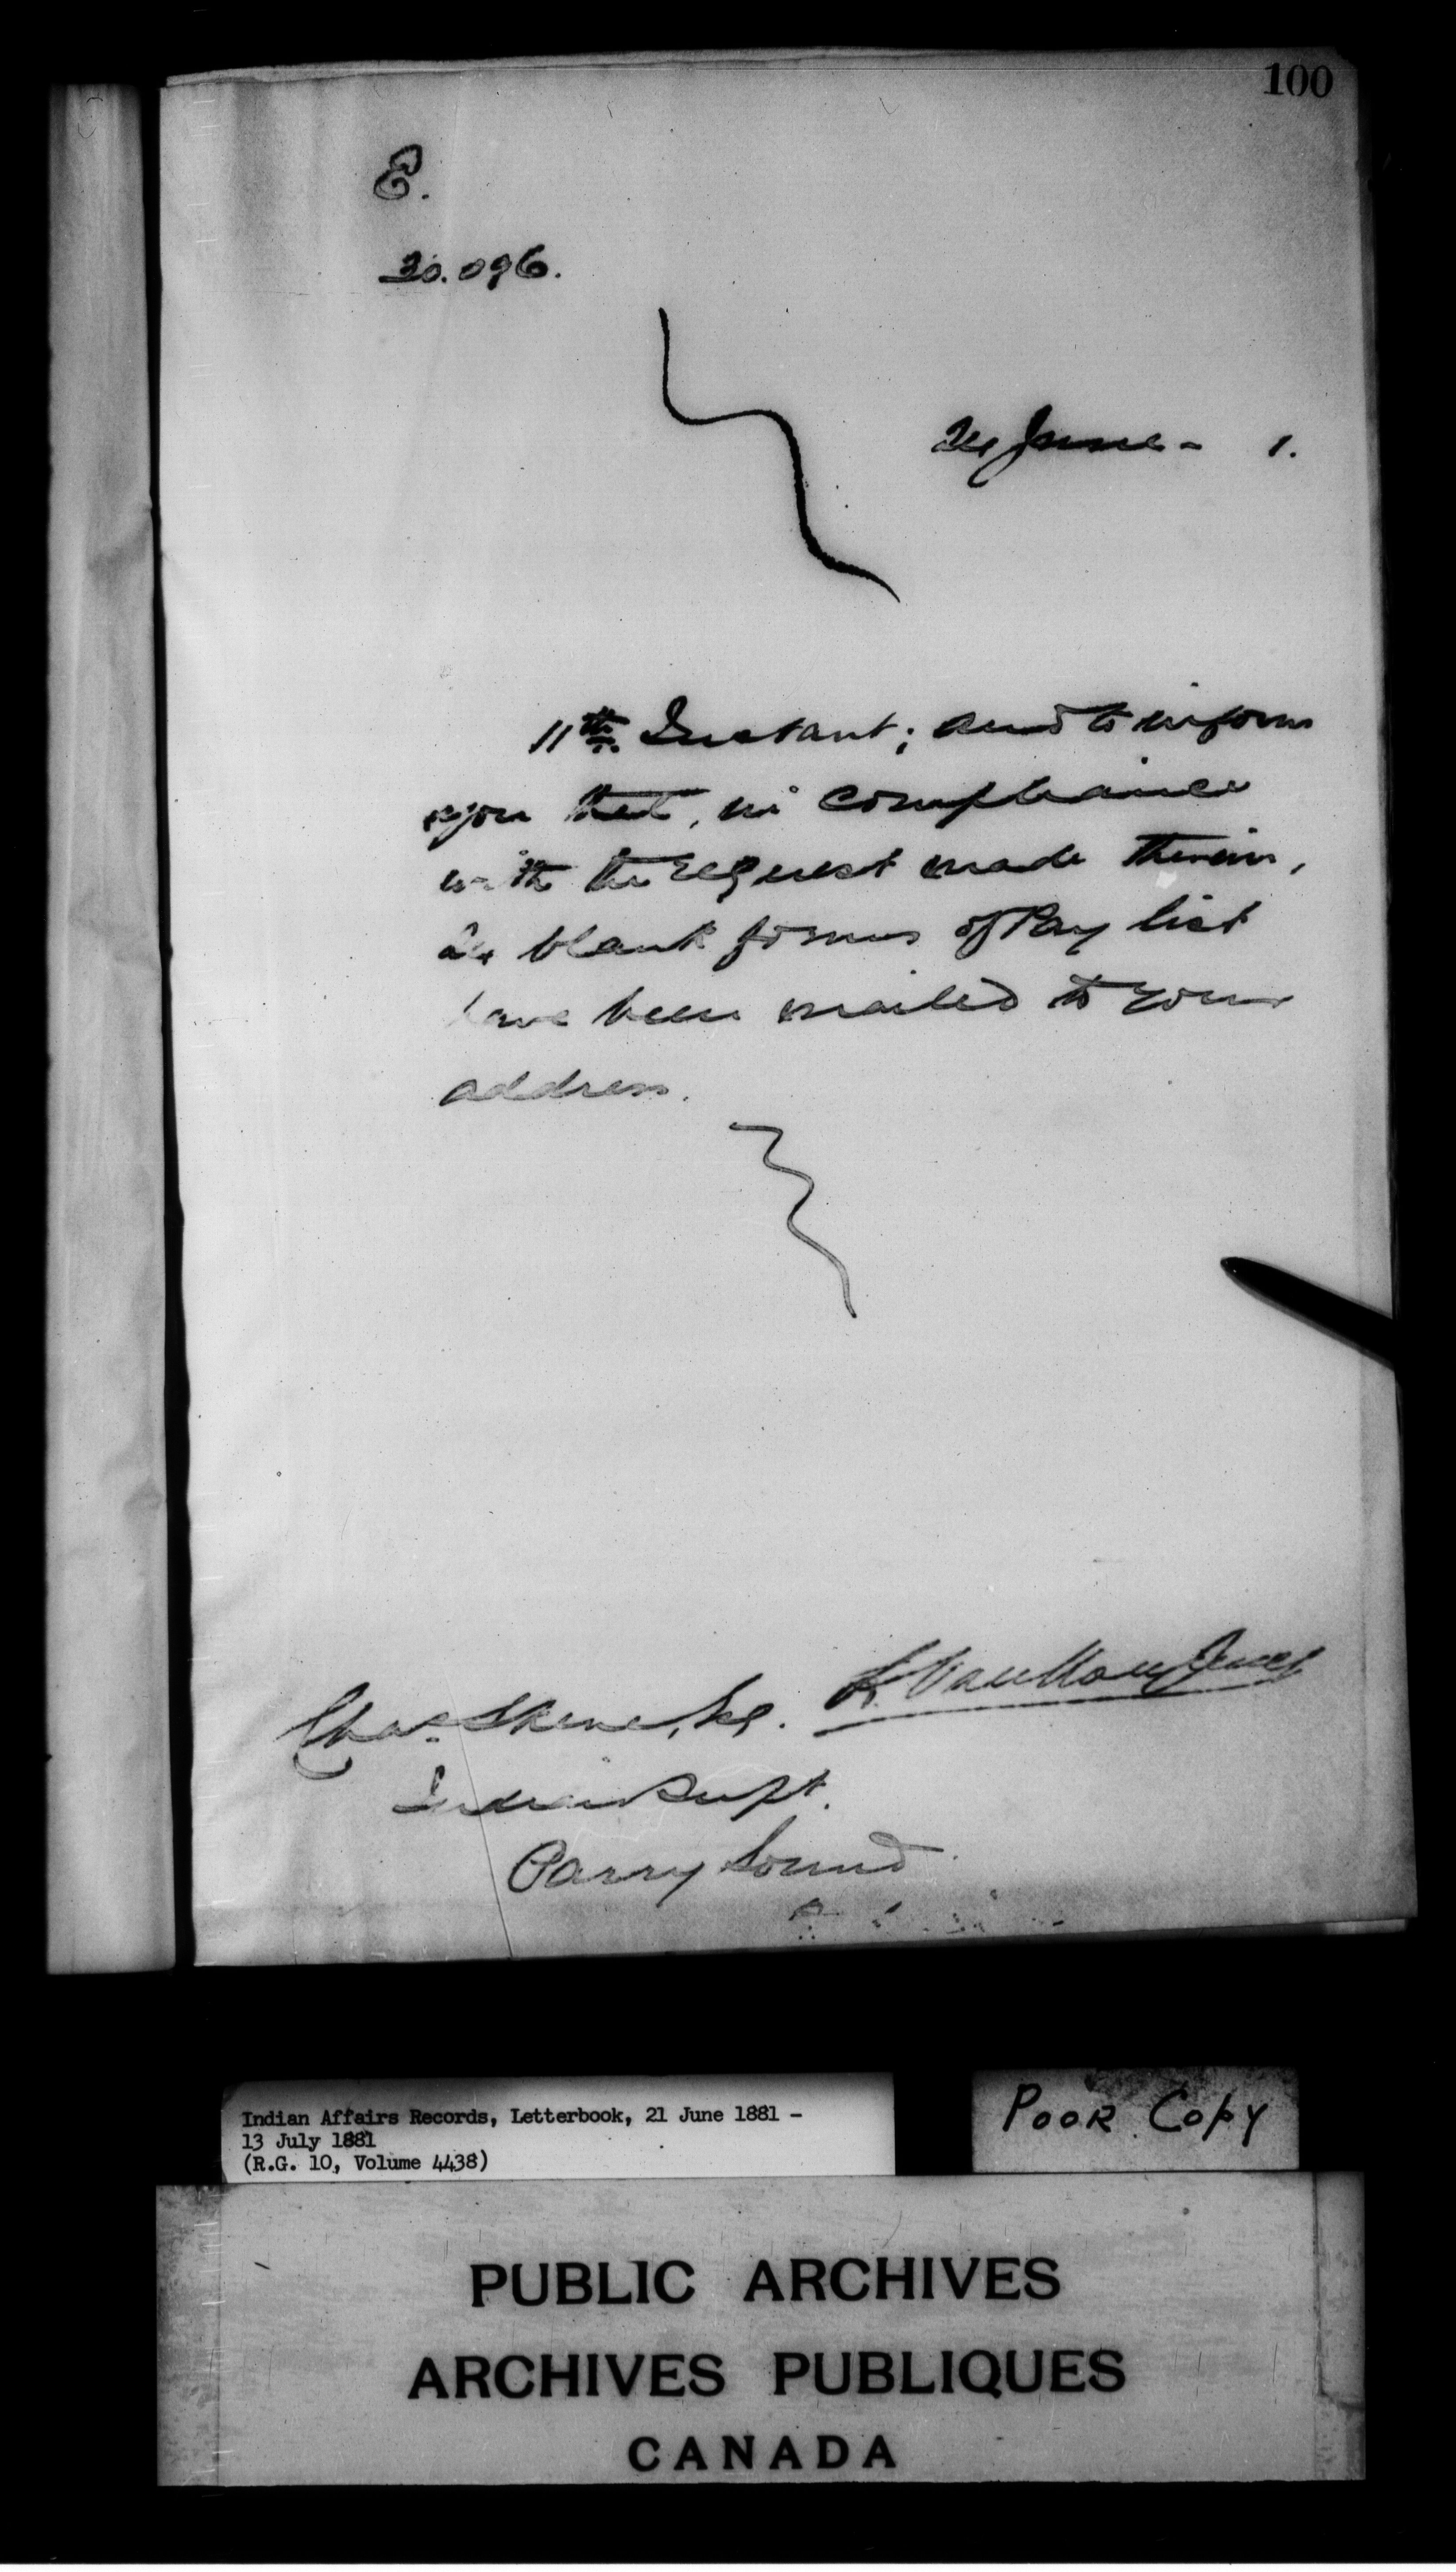 100
E.
30.096.
24 June - 1.
11th. Instant; and to inform
you that, in compliance
with the request made therein,
24 blank forms of Pay list
have been mailed to your
address.
L. VanKoughnet
Chas. Skene, Esq.
Indian Supt.
Parry Sound
Indian Affairs Records, Letterbook, 21 June 1881 -
13 July 1881
(R.G. 10, Volume 4438)
POOR COPY
PUBLIC ARCHIVES
ARCHIVES PUBLIQUES
CANADA